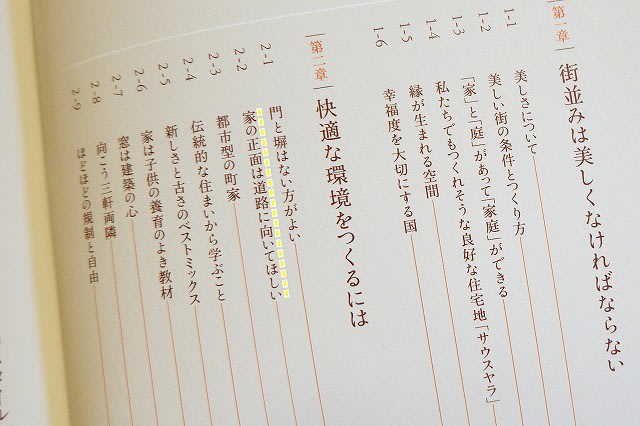 第一章 街並みは美しくなければならない
1-1 美しさについて
1-2 美しい街の条件とつくり方
1-3 「家」と「庭」があって「家庭」ができる
1-4 私たちでもつくれそうな良好な住宅地「サウスヤラ」
1-5 縁が生まれる空間
1-6 幸福度を大切にする国
第二章 快適な環境をつくるには
2-1 門と塀はない方がよい
2-2 家の正面は道路に向いてほしい
2-3 都市型の町家
2-4 伝統的な住まいから学ぶこと
2-5 新しさと古さのベストミックス
2-6 家は子供の養育のよき教材
2-7 窓は建築の心
2-8 向こう三軒両隣
2-9 ほどほどの規制と自由